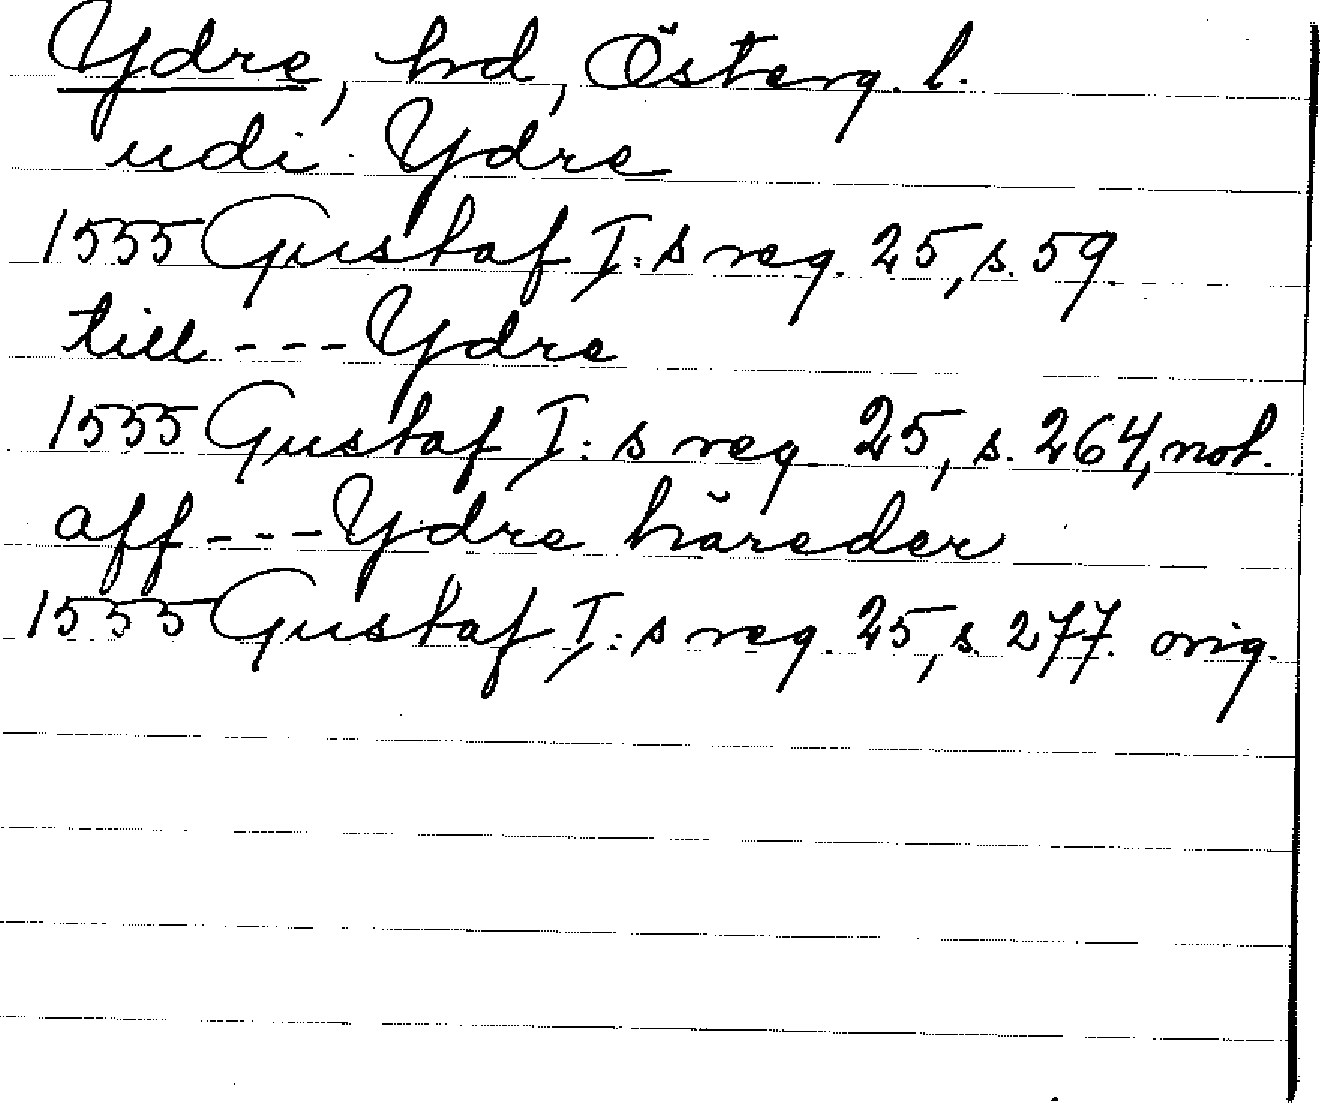 Ydre, hd, Österg. l.
udi Ydre
1555 Gustaf I:s reg. 25, s. 59.
till --- Ydre
1555 Gustaf I:s reg. 25, s. 264, not.
aff --- Ydre häreder
1555 Gustaf I:s reg. 25, s. 277. orig.